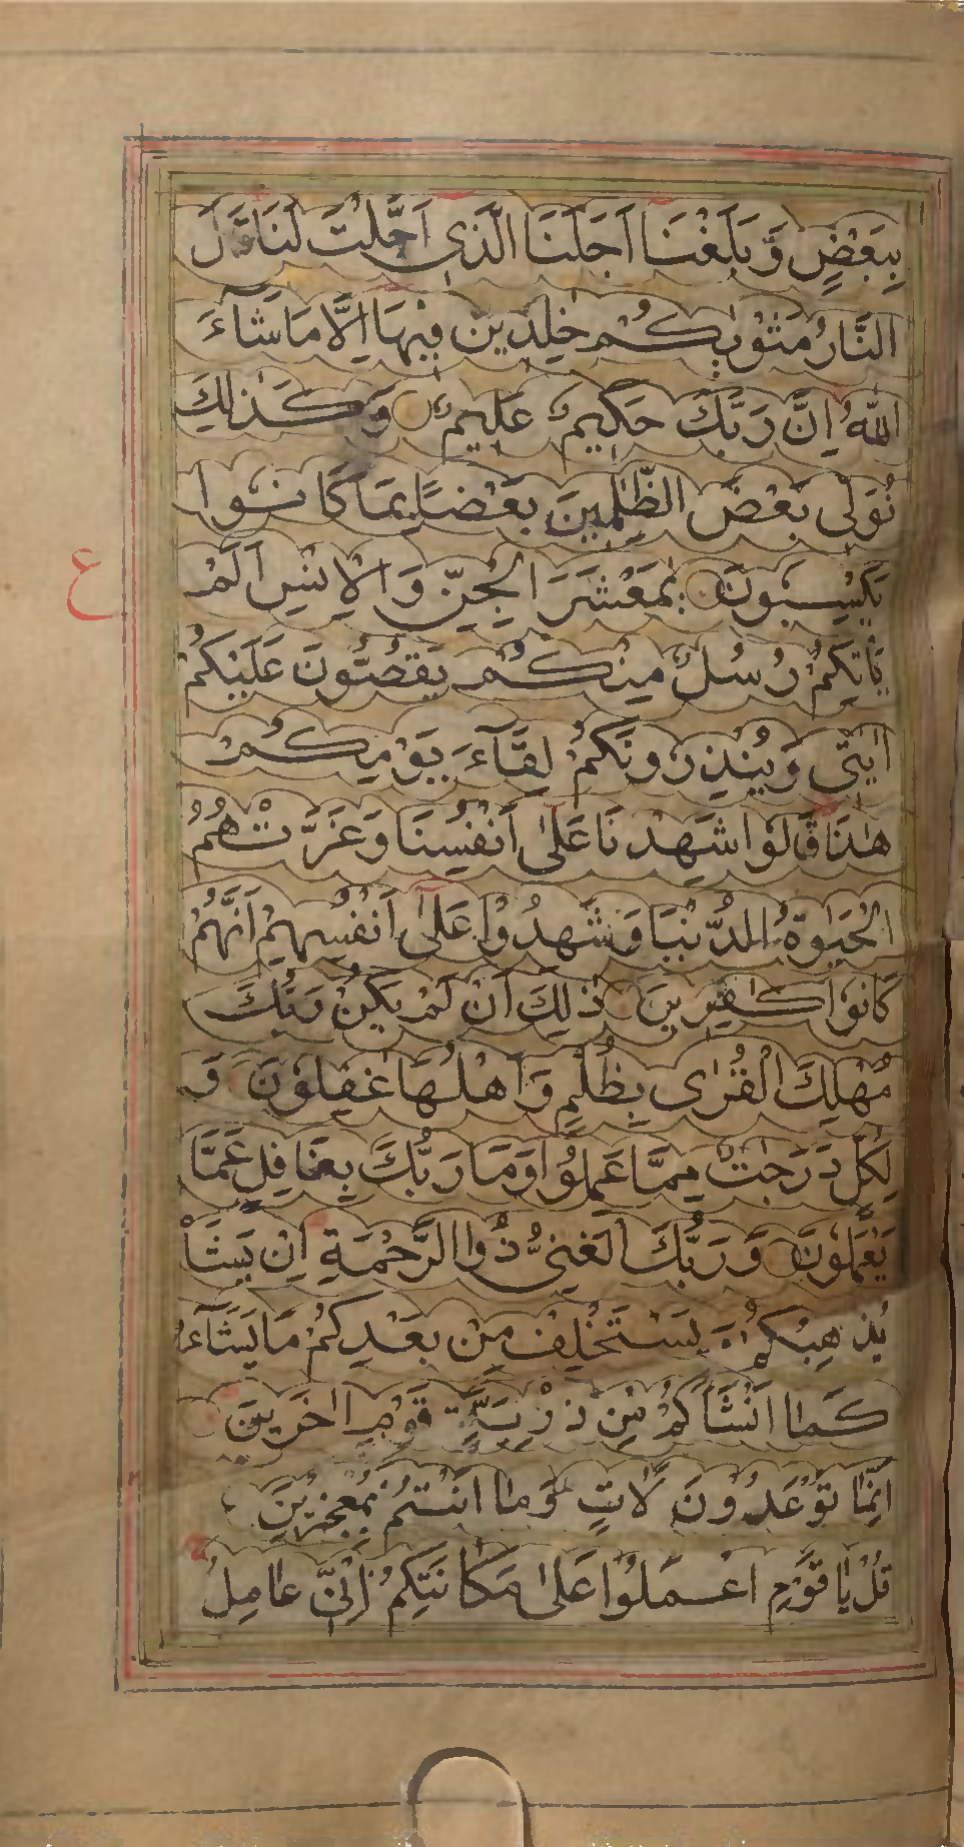 بِبَعْضٍ وَّبَلَغْنَا اَجَلَنَا الَّذِى اَجَّلْتَ لَنَا قَالَ
النَّارُ مَثْوٰىكُمْ خٰلِدِينَ فِيهَا اِلَّا مَا شَآءَ
اللّٰهُ اِنَّ رَبَّكَ حَكِيمٌ عَلِيمٌ وَكَذٰلِكَ
نُوَلِّى بَعْضَ الظّٰلِمِينَ بَعْضًا بِمَا كَانُوا
يَكْسِبُونَ يٰمَعْشَرَ الْجِنِّ وَالْاِنْسِ اَلَمْ
يَاْتِكُمْ رُسُلٌ مِنْكُمْ يَقُصُّونَ عَلَيْكُمْ
اٰيٰتِى وَيُنْذِرُونَكُمْ لِقَآءَ يَوْمِكُمْ
هٰذَا قَالُوا شَهِدْنَا عَلٰى اَنْفُسِنَا وَغَرَّتْهُمُ
الْحَيٰوةُ الدُّنْيَا وَشَهِدُوْا عَلٰٓى اَنْفُسِهِمْ اَنَّهُمْ
كَانُوا كٰفِرِينَ ذٰلِكَ اَنْ لَمْ يَكُنْ رَبُّكَ
مُهْلِكَ الْقُرٰى بِظُلْمٍ وَاَهْلُهَا غٰفِلُوْنَ وَ
لِكُلٍّ دَرَجٰتٌ مِمَّا عَمِلُوْا وَمَا رَبُّكَ بِغَافِلٍ عَمَّا
يَعْمَلُوْنَ وَرَبُّكَ الْغَنِىُّ ذُوا الرَّحْمَةِ اِنْ يَّشَاْ
يُذْهِبْكُمْ وَيَسْتَخْلِفْ مِنْ بَعْدِكُمْ مَا يَشَآءُ
كَمَا اَنْشَاَكُمْ مِنْ ذُرِّيَّةِ قَوْمٍ اٰخَرِينَ
اِنَّمَا تُوْعَدُونَ لَاٰتٍ وَمَا اَنْتُمْ بِمُعْجِزِيْنَ
قُلْ يَا قَوْمِ اعْمَلُوْا عَلٰى مَكَانَتِكُمْ اِنِّىْ عَامِلٌ
ع